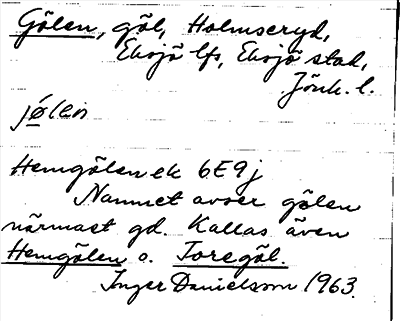 Gölen, göl, Holmseryd,
Eksjö lfs, Eksjö stad,
Jönk. l.
jø̱len
Hemgölen ek 6E9j
Namnet avser gölen
närmast gd. Kallas även
Hemgölen o. Toregöl.
Inger Danielsson 1963.